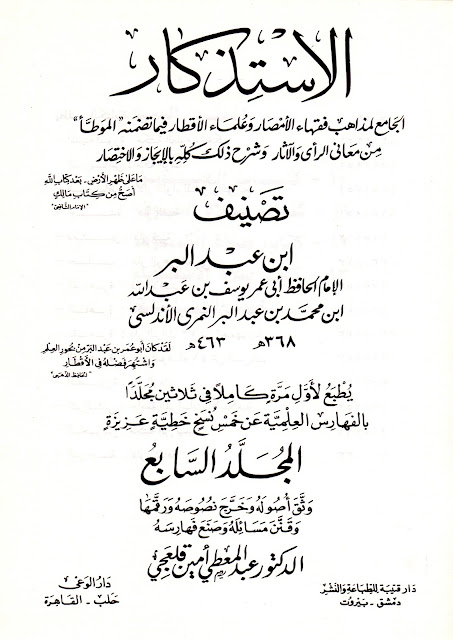 الاستذكار
الجامع لمذاهب فقهاء الأمصار وعلماء الأقطار فيما تضمنه "الموطأ"
من معاني الرأي والآثار وشرح ذلك كله بالإيجاز والاختصار
ما على ظهر الأرض - بعد كتاب الله
أصح من كتاب مالك
"الإمام الشافعي"
تصنيف
ابن عبد البر
الإمام الحافظ أبي عمر يوسف بن عبد الله
ابن محمد بن عبد البر النمري الأندلسي
٣٦٨هـ ٤٦٣هـ
لقد كان أبو عمر بن عبد البر من بحور العلم
واشتهر فضله في الأقطار
"الحافظ الذهبي"
يُطبَعُ لأوّل مَرّةٍ كاملاً في ثلاثين مُجلّدًا
بالفهارس العِلْميّة عَن خَمْسِ نُسَخٍ خَطّيةٍ عَزيزَةٍ
المجلَّدُ السَّابعُ
وَثَّقَ أصُولَهُ وَخَرَّجَ نصُوصَهُ وَرَقَّمَهَا
وَقَنَّنَ مَسَائِلَهُ وَصَنَعَ فَهَارِسَهُ
الدكتور عبد المعطي أمين قلعجي
دار قتيبة للطباعة والنشر
دمشق - بيروت
دار الوعي
حلب - القاهرة